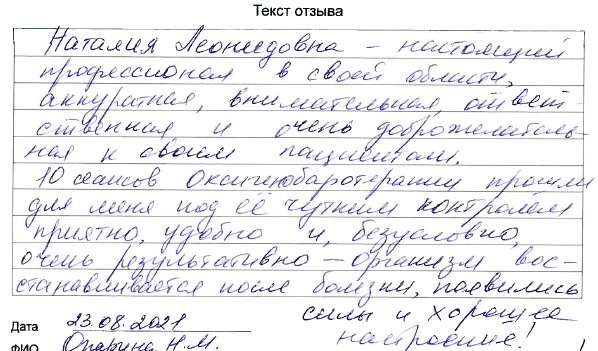 Текст отзыва
Наталия Леонидовна – настоящий
профессионал в своей области,
аккуратная, внимательная, ответ-
ственная и очень доброжелатель-
ная к своим пациентам.
10 сеансов оксигенобаротерапии прошли
для меня под её чутким контролем
приятно, удобно и, безусловно,
очень результативно – организм вос-
станавливается после болезни, появились
силы и хорошее
Дата 23.08.2021
настроение!
ФИО Опарина Н.М.